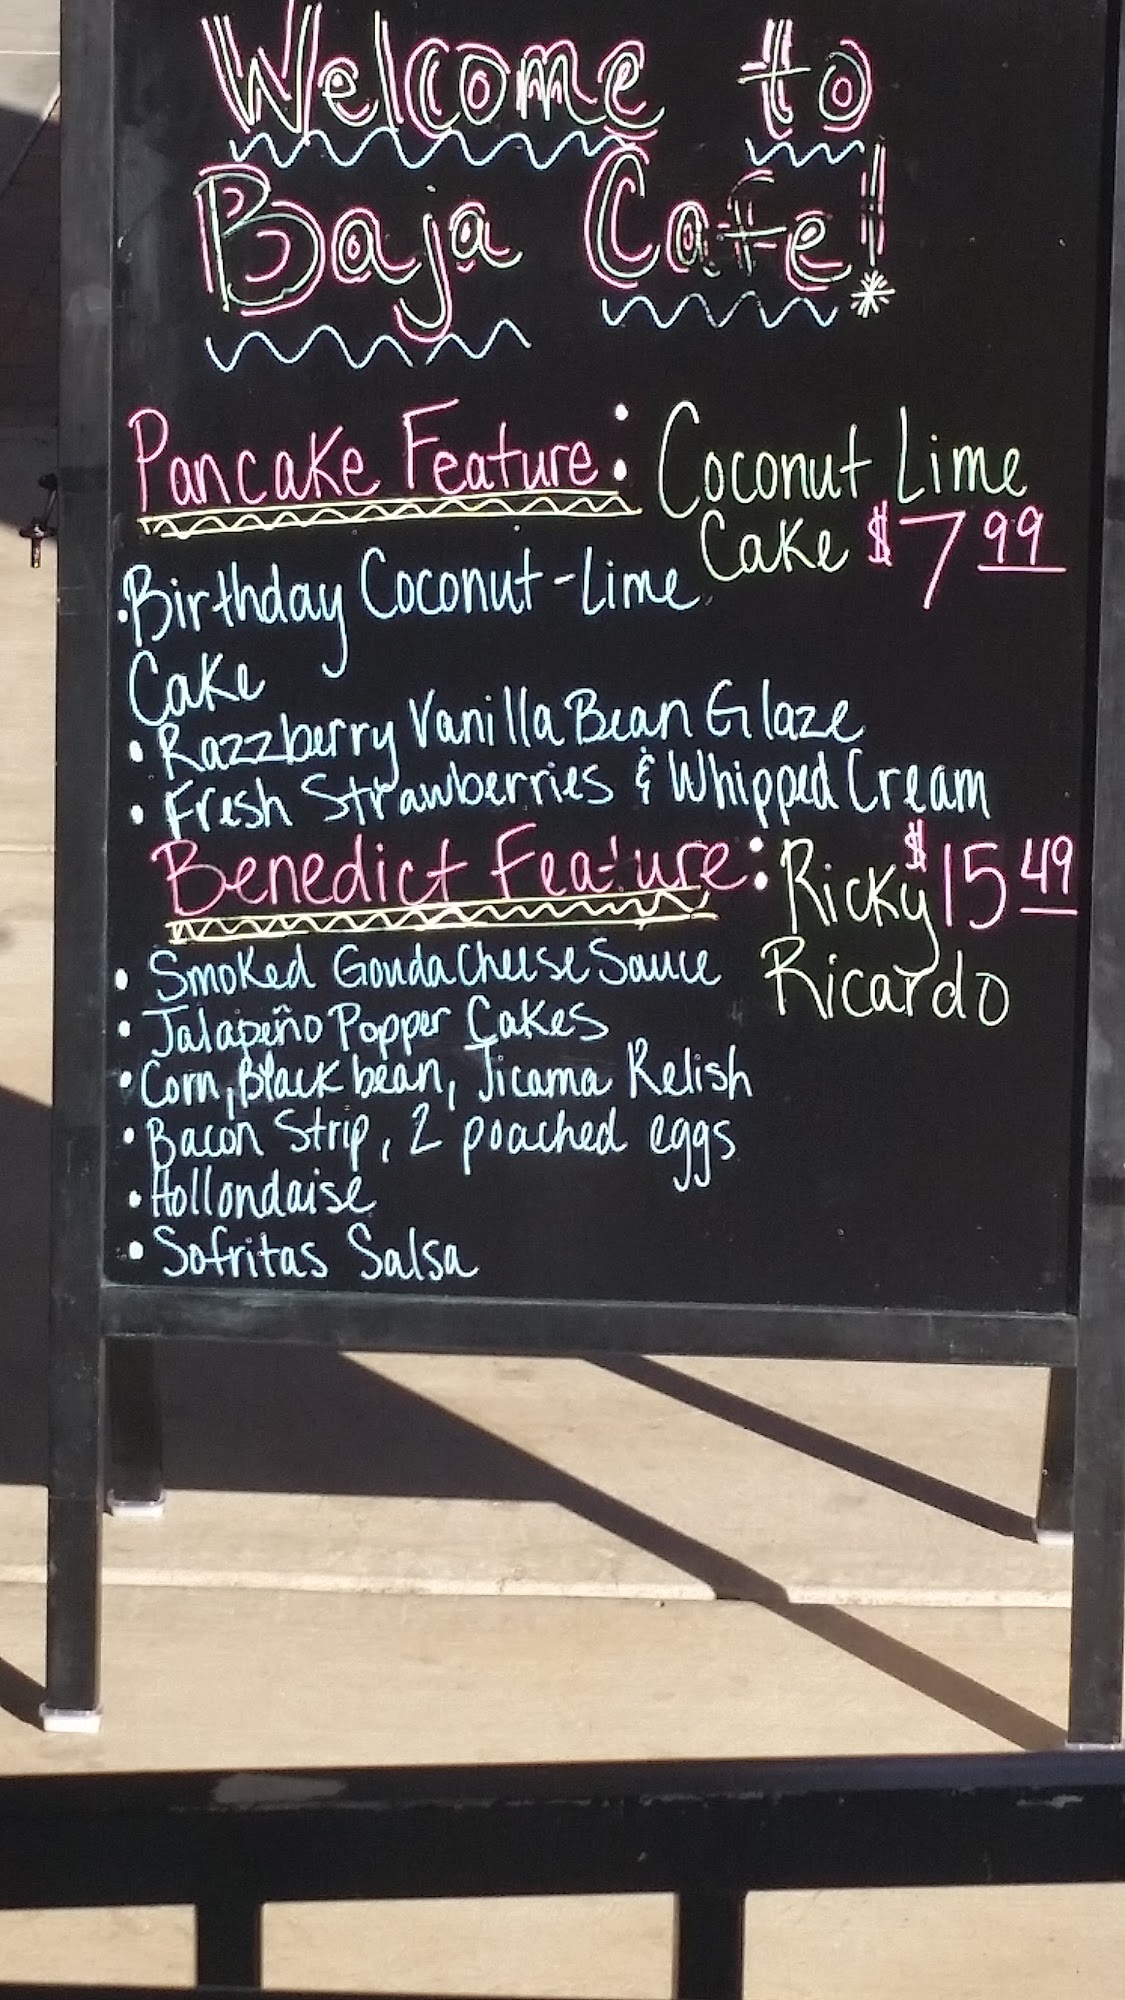 Welcome to
Baja Cafe!
Pancake Feature: Coconut Lime
Cake $7 99
• Birthday Coconut-Lime
Cake
• Razzberry Vanilla Bean Glaze
• Fresh Strawberries & Whipped Cream
Benedict Feature: Ricky $15 49
Ricardo
• Smoked Gouda Cheese Sauce
• Jalapeño Popper Cakes
• Corn, Black bean, Jicama Relish
• Bacon Strip, 2 poached eggs
• Hollondaise
• Sofritas Salsa